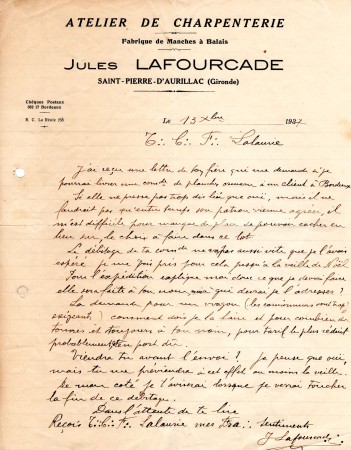 ATELIER DE CHARPENTERIE
Fabrique de Manches à Balais
JULES LAFOURCADE
SAINT-PIERRE-D'AURILLAC (Gironde)
Chèques Postaux
Bordeaux
R. C. La Réole
Le 13 Xbre 1937
T∴ C∴ F∴ Lalaurie
J'ai reçu une lettre de ton frère qui me demande si je
pourrais livrer une de planches à un client à Bordeaux
Si elle ne presse pas trop dis lui que oui, mais il ne
faudrait pas qu'entre temps son patron vienne agréer, il
m'est difficile pour manque de place de pouvoir cacher en
lieu sur le choix à faire dans ce lot.
Le débitage de ta comde ne va pas aussi vite que je l'avais
espéré je me finir pour cela jusqu'à la veille de Noël
Pour l'expédition explique moi donc ce que je devrai faire
elle sera faite à ton nom, mais qui devrai je l'adresser ?
La demande pour un wagon (les camionneurs sont trop
exigeants) comment dois je la faire et pour combien de
tonnes et toujours à ton nom, pour tarif le plus réduit
probablement en port dû.
Viendra tu avant l'envoi ? je pense que oui,
mais tu me préviendra à cet effet au moins la veille.
De mon coté je t'aviserai lorsque je verrai toucher
la fin de ce débitage.
Dans l'attente de te lire
Reçois T∴ C∴ F∴ Lalaurie mes sentiments
J Lafourcade